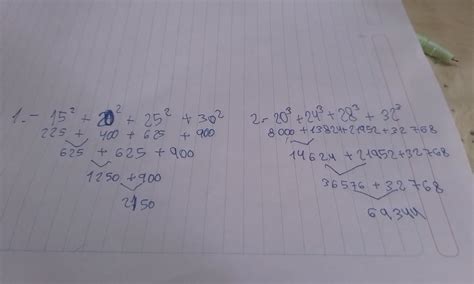 1.- 15² + 20² + 25² + 30²
225 + 400 + 625 + 900
625 + 625 + 900
1250 + 900
2150
2.- 20³ + 24³ + 28³ + 32³
8000 + 13824 + 21952 + 32768
14624 + 21952 + 32768
36576 + 32768
69344